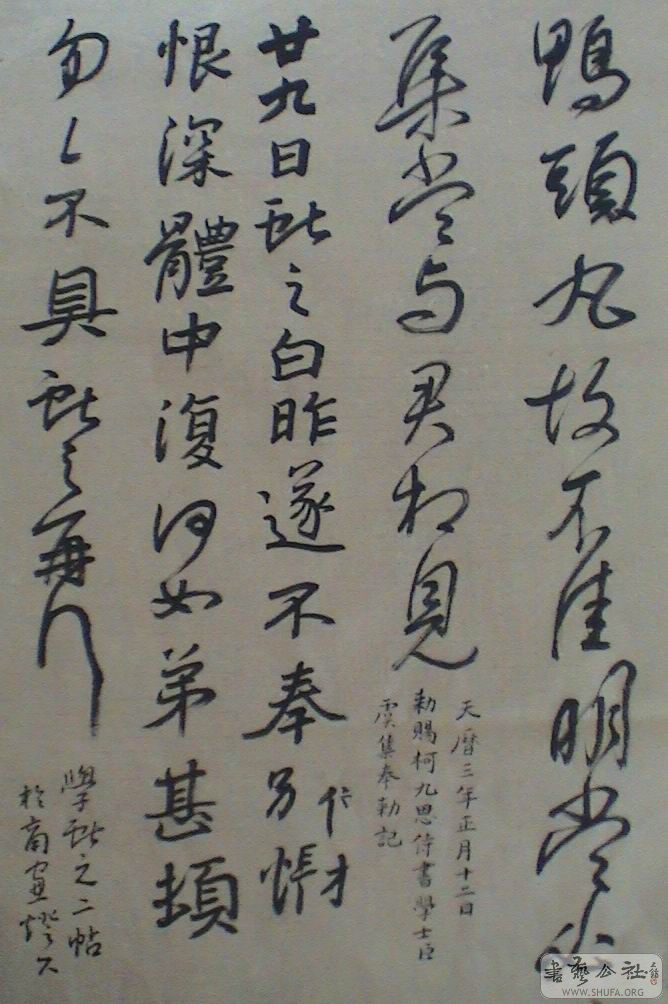 鴨頭丸故不佳明當必
集當与君相見
天曆三年正月十二日
勅賜柯九思侍書學士臣
虞集奉勅記
廿九日獻之白昨遂不奉別悵
恨深體中復何如弟甚頓
匆〻不具獻之再拜
學獻之二帖
书艺公社
WWW.SHUFA.ORG